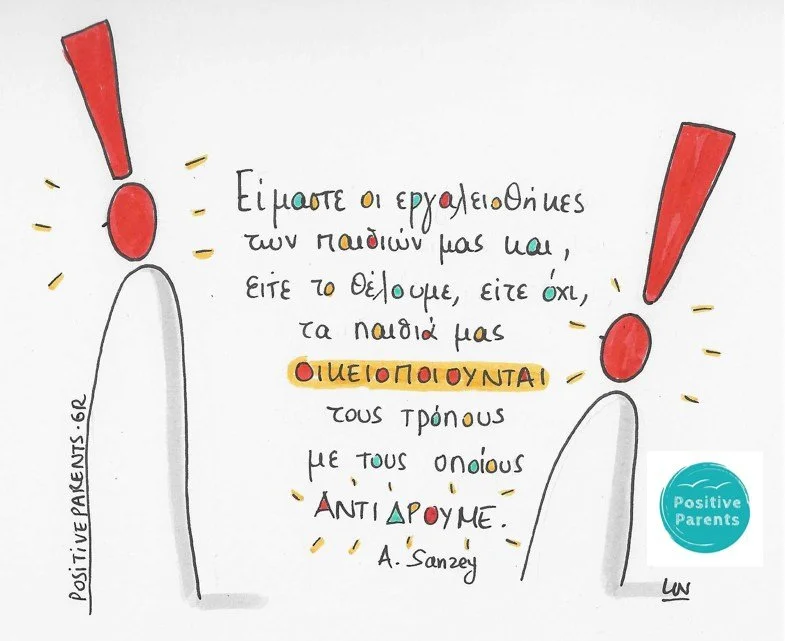 Είμαστε οι εργαλειοθήκες
των παιδιών μας και,
είτε το θέλουμε, είτε όχι,
τα παιδιά μας
ΟΙΚΕΙΟΠΟΙΟΥΝΤΑΙ
τους τρόπους
με τους οποίους
ΑΝΤΙΔΡΟΥΜΕ.
A. Sanzey
POSITIVEPARENTS.GR
Positive
Parents